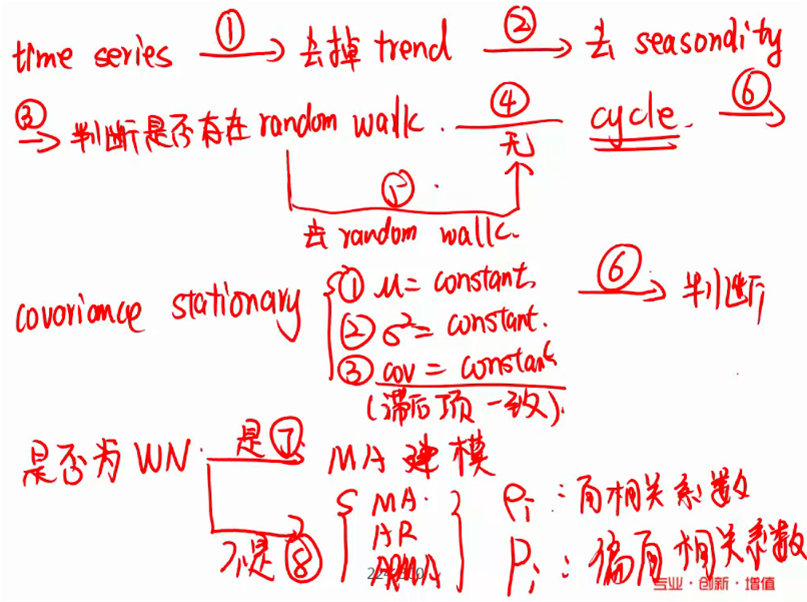 time series ① 去掉 trend ② 去 seasondity
③ 判断是否存在 random walk. ④ 无 cycle. ⑥
⑤
去 random walk.
covariance stationary ① μ = constant, ⑥ 判断
② σ² = constant.
③ cov = constant
(滞后项一致).
是否为 WN. 是 ⑦ MA 建模
不是 ⑧ MA. ρi : 自相关系数
AR
ARMA Pi : 偏自相关系数
专业 · 创新 · 增值